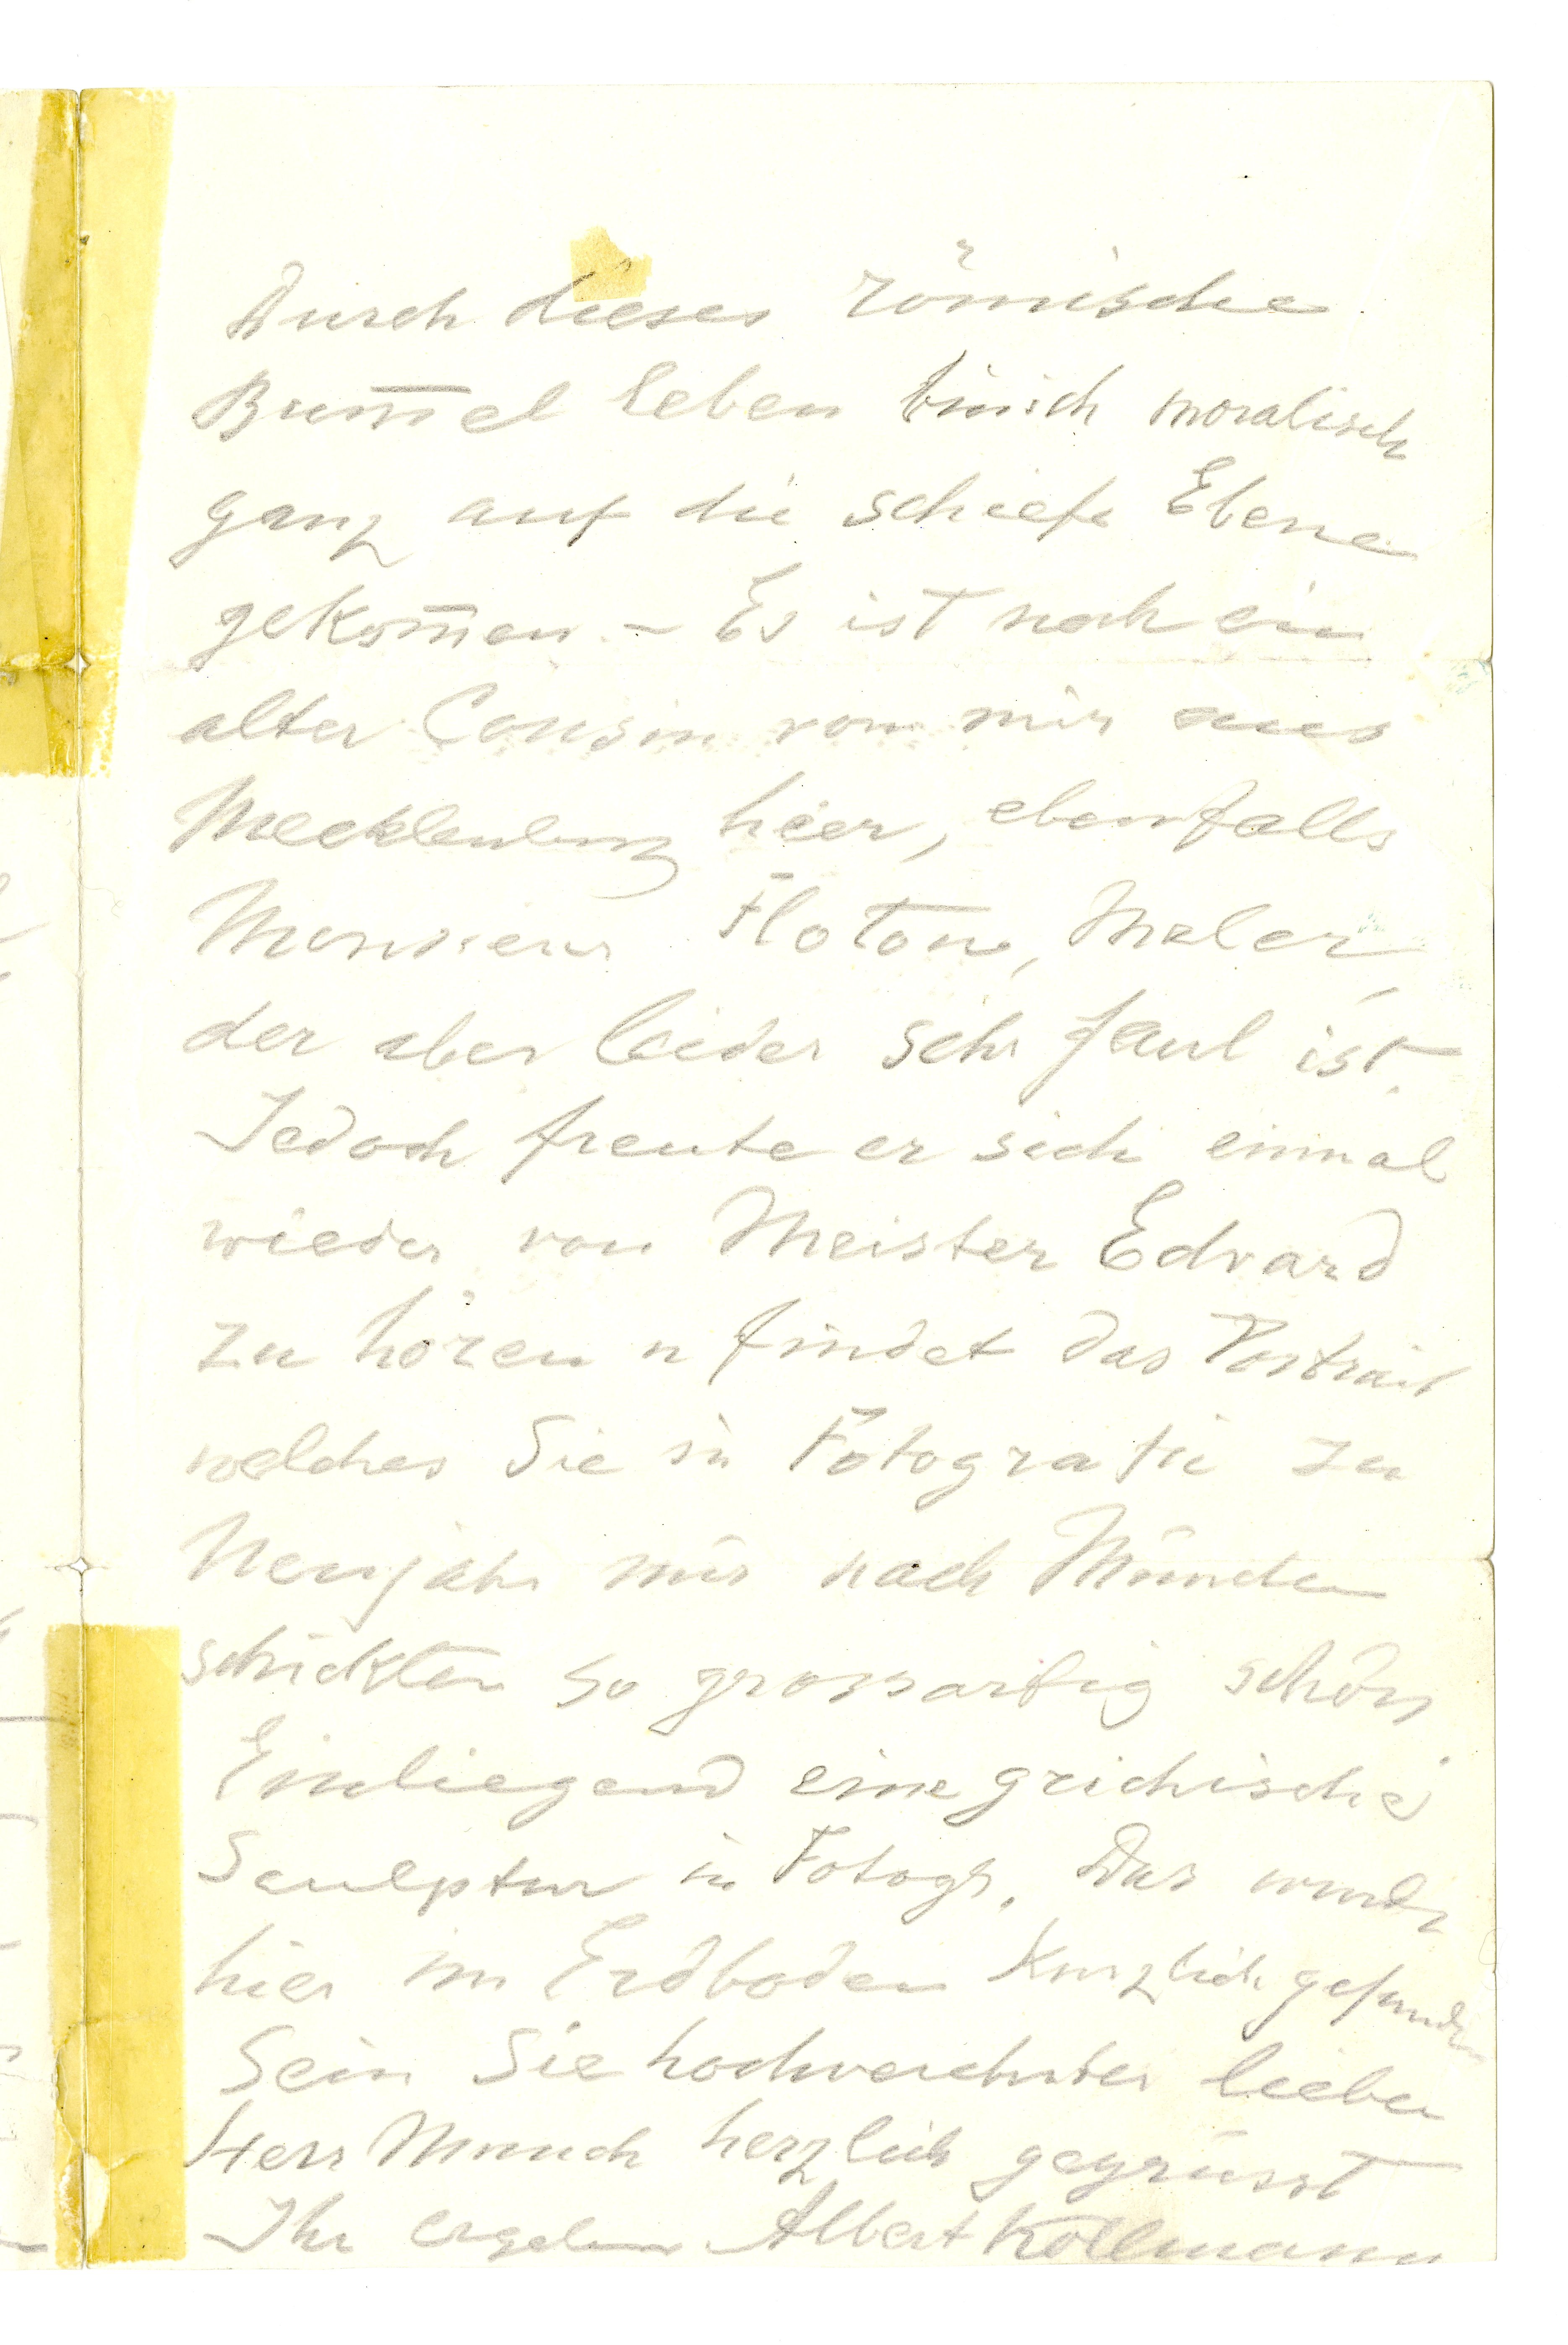 Durch dieses römische
Bum̅el leben bin ich moralisch
ganz auf die schiefe Ebene
gekom̅en. – Es ist noch ein
alter Cousin von mir aus
Mecklenburg hier, ebenfalls
Monsieur Flotow, Maler,
der aber leider sehr faul ist.
Jedoch freute er sich einmal
wieder von Meister Edvard
zu hören u findet das Portrait
welches Sie in Fotografie zu
Neujahr mir nach München
schickten so grossartig schön
Einliegend eine grichische
Sculptur in Fotogr. Das wurde
hier im Erdboden kurzlich gefunden
Sein Sie hochverehrter lieber
Herr Munch herzlich gegrüsst
Ihr ergebener Albert Kollmann